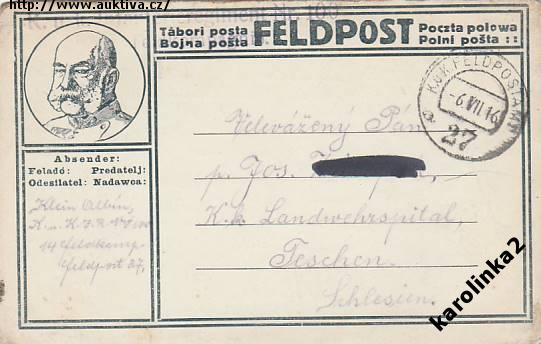 Zdroj: https://www.auktiva.cz/
Tábori posta
Bojna pošta
FELDPOST
Poczta polowa
Polni pošta ::
K.u.K. FELDPOSTAMT
-6.VII.16
a
27
Absender:
Feladó: Predatelj:
Odesilatel: Nadawca:
Klein Albin,
K. u. K. I. R. No 100
14 Feldkomp.
Feldpost 27.
Velevážený Pan
p. Jos.
K.k. Landwehrspital,
Teschen.
Schlesien.
karolinka2